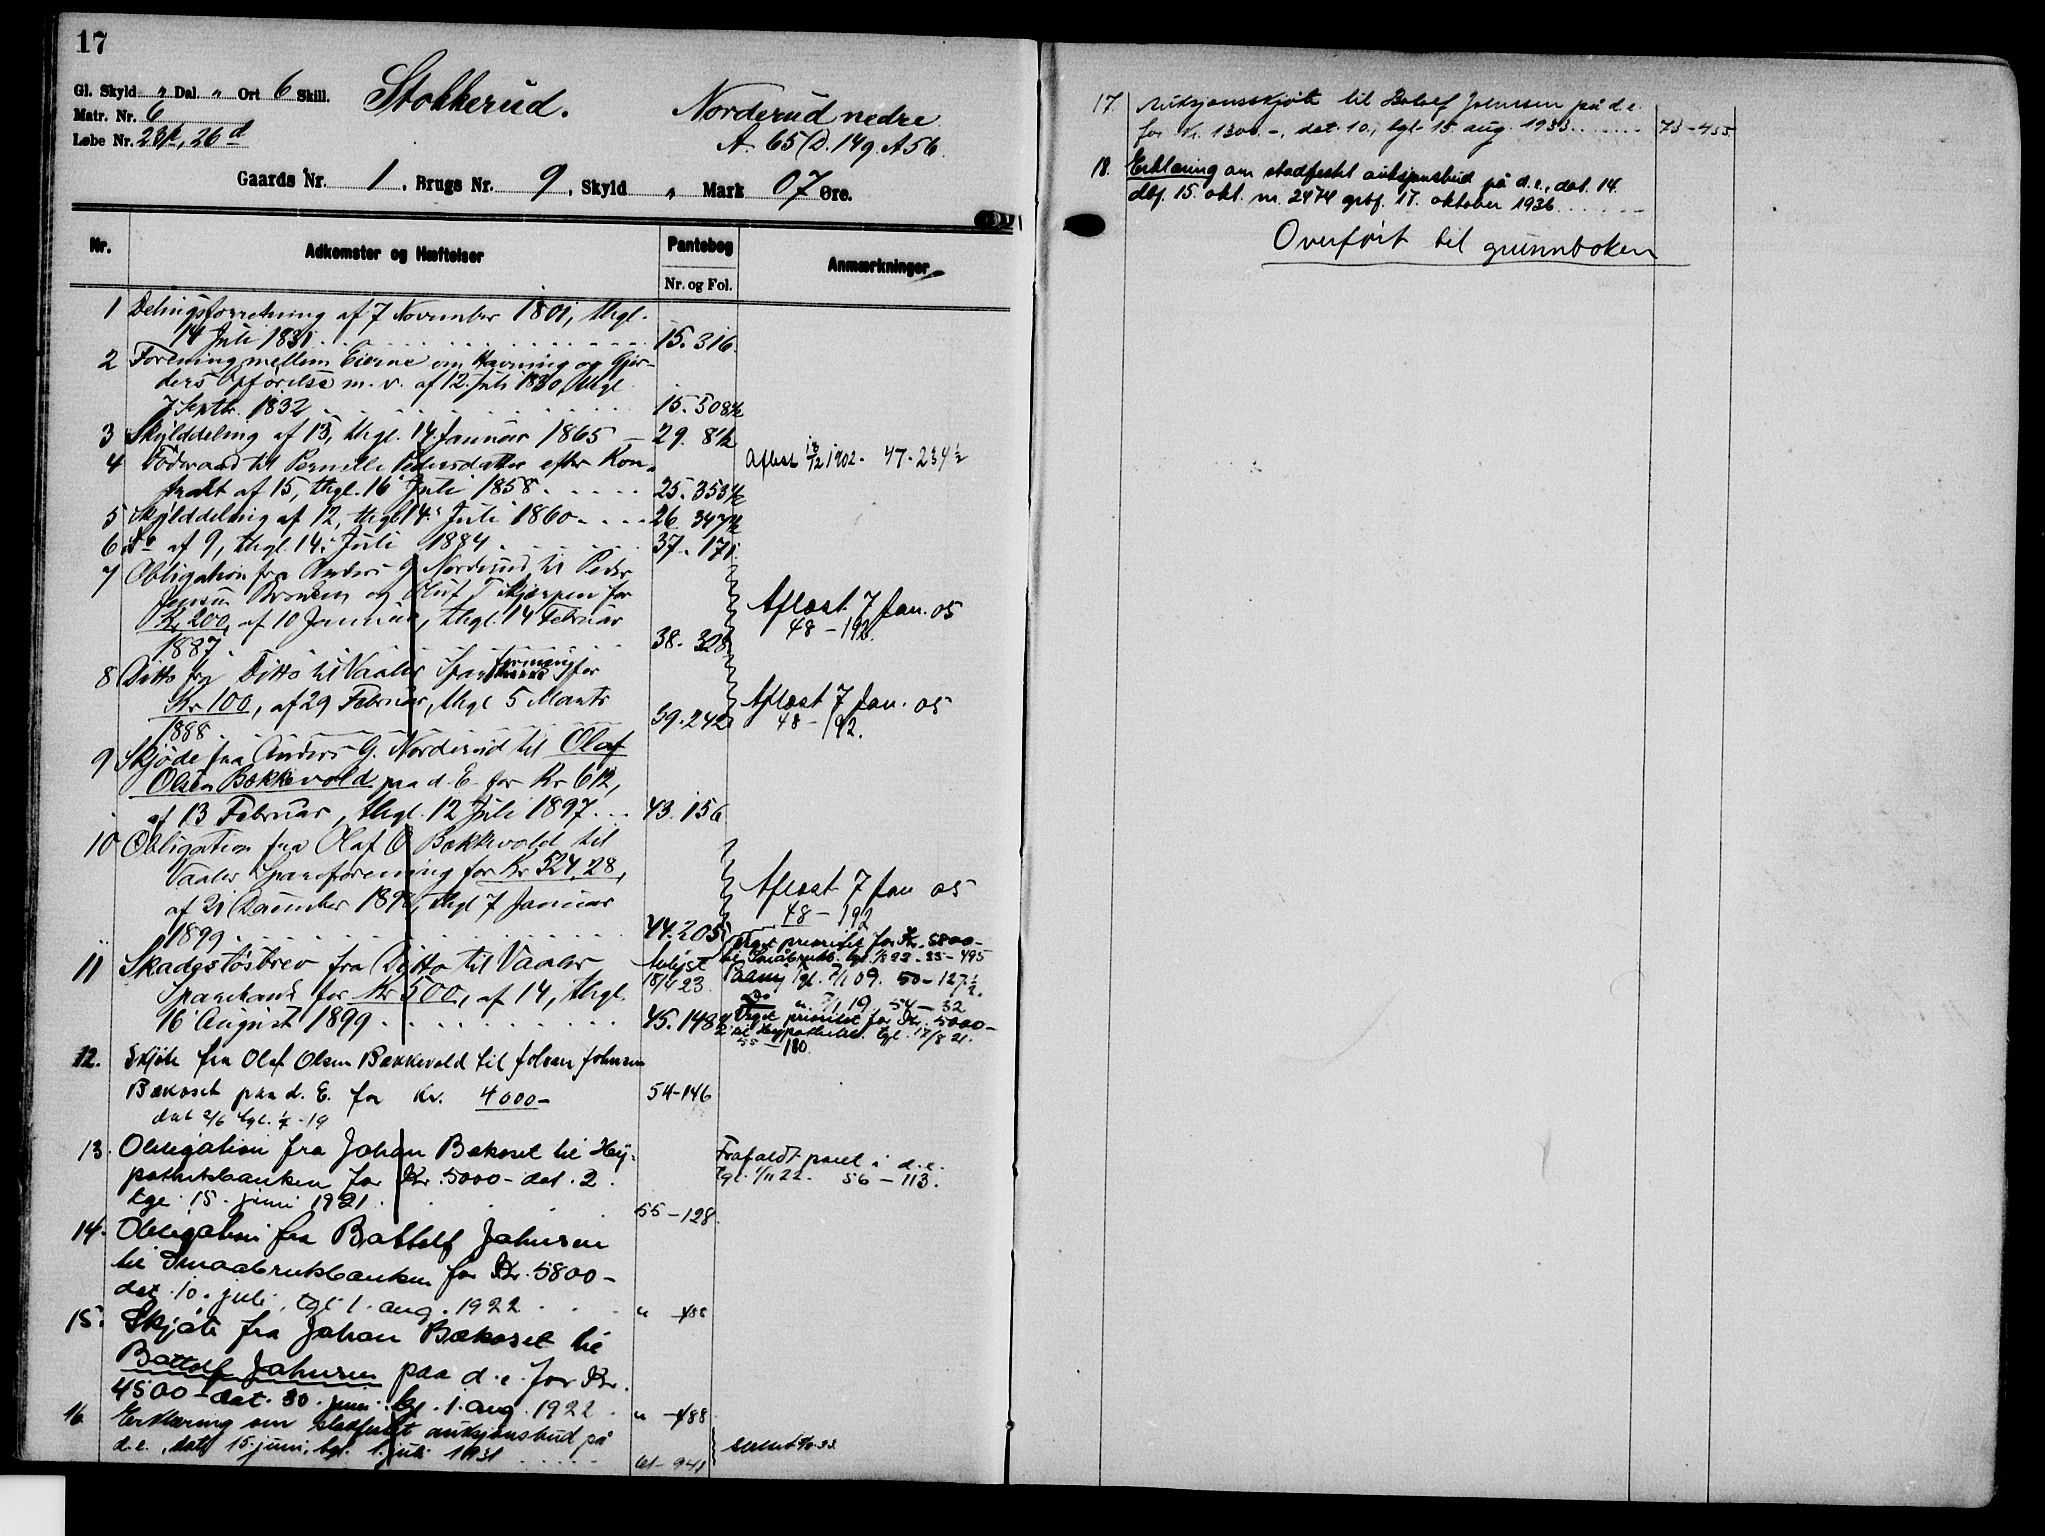 17
Gl. Skyld „ Dal. „ Ort 6 Skill.
Matr. Nr. 6
Løbe Nr. 23k, 26d
Stokkerud.
Norderud nedre
A. 65 (D. 149. A56.
Gaards Nr. 1, Brugs Nr. 9, Skyld „ Mark 07 Øre.
Nr. Adkomster og Hæftelser Pantebog Anmærkninger
Nr. og Fol.
1 Delingsforretning af 7 November 1801, thgl.
14 Juli 1831. 15. 316.
2 Forening mellem Eierne om Havning og Gjer-
ders Opførelse m. v. af 12. Juli 1830, thgl.
7 Septbr. 1832 15. 508½
3 Skylddeling af 13, thgl. 14 Januar 1865 29. 8½
4 Føderaad til Pernille Pedersdatter efter Kon-
trakt af 15, thgl. 16 Juli 1858. 25. 353½
Aflæst 13/12 1902. 47-234½
5 Skylddeling af 12, thgl 14 Juli 1860 26. 347½
6 do af 9, thgl. 14. Juli 1884. 37. 171.
7 Obligation fra Anders G. Norderud til Peder
Jensen og Oluf T. Skjærpen for
Kr 200, af 10 Januar, thgl. 14 Februar
1887. 38. 328
Aflæst 7 Jan. 05
48 – 192.
8 Ditto fra Ditto til Vaaler Spareforening for
Kr 100, af 29 Februar, thgl 5 Marts
1888. 39. 242
Aflæst 7 Jan. 05
48 – 192.
9 Skjøde fra Anders G. Norderud til Olaf
Olsen Bækkevold paa d. E. for Kr 612,
af 13 Februar, thgl. 12 Juli 1897. 43. 156
10 Obligation fra Olaf O. Bækkevold til
Vaaler Spareforening for Kr 524,28,
af 21 December 1898, thgl 7 Januar
1899. 44. 205
Aflæst 7 Jan 05
48 – 192
11 Skadesløsbrev fra Ditto til Vaaler
Sparebank for Kr 500, af 14, thgl.
16 August 1899. 45. 148
Avlyst
18/4 23.
Veget prioritet for Kr. 5800-
til Småbrukb. tgl. 1/8 22 - 55 - 495
Paany Tgl. 7/1 09. 50 – 127½.
Do " 7/1 19. 54 – 32
Veget prioritet for Kr. 5000-
til Hypothekb. tgl. 17/8 21.
55 – 180.
12. Skjøte fra Olaf Olsen Bækkevold til Johan Johnsen
Bækoset paa d. E. for Kr. 4000- 54-146
dat 2/6 tgl. 1/7 -19
13. Obligation fra Johan Bækoset til Hy-
pothekbanken for Kr. 5000 – dat. 2.
tgl. 15. juni 1921. 55 – 128.
Frafaldt pant i d.e.
Tgl. 1/11 22. 56 – 113.
14. Obligation fra Bottolf Johnsen
til Smaabrukbanken for Kr. 5800 –
dat. 10. juli, tgl. 1. aug. 1922 " – 488
15. Skjøte fra Johan Bækoset til
Bottolf Johnsen paa d. e. for Kr.
4500 – dat. 30. juni. tgl. 1. aug. 1922. " – 488
16. Erklæring om stadfestet auksjonsbud på
d.e., dat. 15. juni, tgl. 1. juli 1931 61 – 941
17. Auksjonsskjøte til Botolf Johnsen på d.e.
for kr. 1300.-, dat. 10., tgl. 15. aug. 1933. 73 – 455
18. Erklæring om stadfestet auksjonsbud på d.e., dat. 14.
dbf. 15. okt. nr. 2474 grbf. 17. oktober 1936
Overført til grunnboken